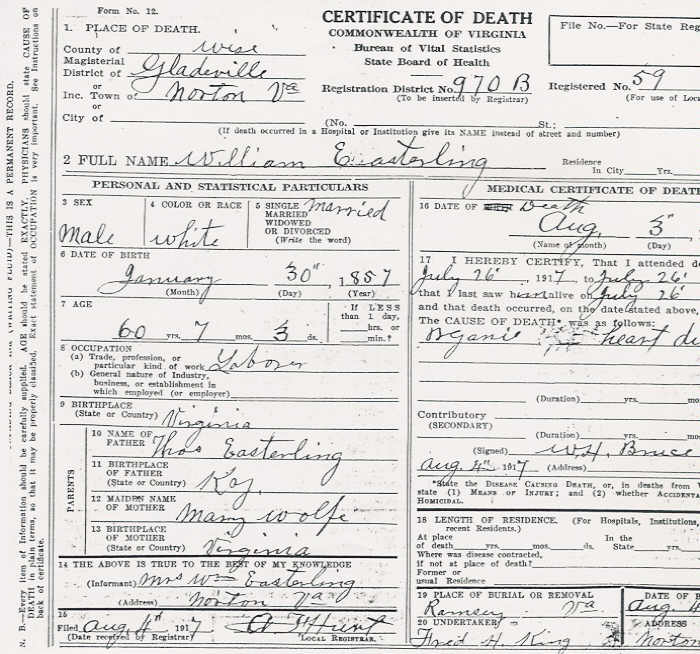 Form No. 12.
CERTIFICATE OF DEATH
COMMONWEALTH OF VIRGINIA
Bureau of Vital Statistics
State Board of Health
File No.—For State Reg
1. PLACE OF DEATH.
County of Wise
Magisterial
District of Gladeville
or
Inc. Town of Norton Va
or
City of
Registration District No. 970 B
(To be inserted by Registrar)
Registered No. 59
(For use of Loca
(No. St.;
(If death occurred in a Hospital or Institution give its NAME instead of street and number)
2 FULL NAME William Easterling
Residence
In City Yrs.
PERSONAL AND STATISTICAL PARTICULARS
3 SEX
Male
4 COLOR OR RACE
white
5 SINGLE
MARRIED
WIDOWED
OR DIVORCED
(Write the word)
Married
6 DATE OF BIRTH
January 30" 1857
(Month) (Day) (Year)
7 AGE
60 yrs. 7 mos. 3 ds.
If LESS
than 1 day,
hrs. or
min.?
8 OCCUPATION
(a) Trade, profession, or
particular kind of work Laborer
(b) General nature of Industry,
business, or establishment in
which employed (or employer)
9 BIRTHPLACE
(State or Country) Virginia
PARENTS
10 NAME OF
FATHER Thos Easterling
11 BIRTHPLACE
OF FATHER
(State or Country) Kay.
12 MAIDEN NAME
OF MOTHER Mary Wolfe
13 BIRTHPLACE
OF MOTHER
(State or Country) Virginia
14 THE ABOVE IS TRUE TO THE BEST OF MY KNOWLEDGE
(Informant) Mrs Wm Easterling
(Address) Norton Va
15
Filed Aug 4" 1917
(Date received of Registrar)
LOCAL REGISTRAR.
MEDICAL CERTIFICATE OF DEAT
16 DATE OF Death
Aug. 3"
(Name of month) (Day)
17 I HEREBY CERTIFY, That I attended de
July 26' 1917, to July 26'
that I last saw him alive on July 26'
and that death occurred, on the date stated above,
The CAUSE OF DEATH* was as follows:
Organic heart di
(Duration) yrs. mo
Contributory
(SECONDARY)
(Duration) yrs. mos
(Signed) W.H. Bruce
Aug 4" 1917 (Address)
*State the DISEASE CAUSING DEATH, or, in deaths from V
state (1) MEANS OF INJURY; and (2) whether ACCIDENTA
HOMICIDAL.
18 LENGTH OF RESIDENCE. (For Hospitals, Institutions,
recent Residents.)
At place
of death yrs. mos. ds.
In the
State yrs.
Where was disease contracted,
if not at place of death?
Former or
usual Residence
19 PLACE OF BURIAL OR REMOVAL
Ramsey Va
DATE OF B
Aug. 4
20 UNDERTAKER
Fred H. King
ADDRESS
Norton
N. B.—Every item of Information should be carefully supplied. AGE should be stated EXACTLY. PHYSICIANS should state CAUSE OF
DEATH in plain terms, so that it may be properly classified. Exact statement of OCCUPATION is very important. See Instructions on
back of certificate.